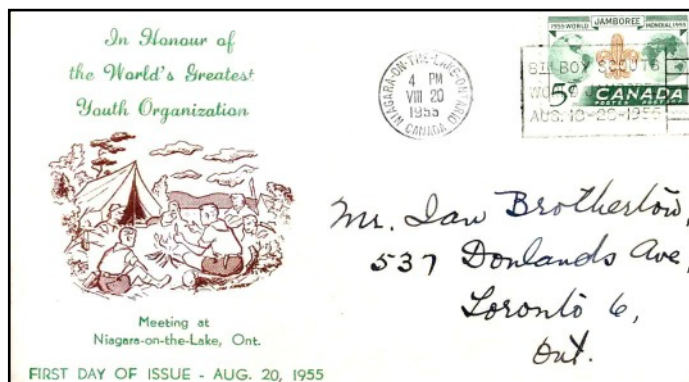 In Honour of
the World's Greatest
Youth Organization
Meeting at
Niagara-on-the-Lake, Ont.
FIRST DAY OF ISSUE - AUG. 20, 1955
NIAGARA-ON-THE-LAKE-ONTARIO
4 PM
VIII 20
1955
CANADA
1955 WORLD JAMBOREE MONDIAL 1955
8TH BOY SCOUTS
5¢ CANADA
POSTES POSTAGE
AUG. 18-28-1955
Mr. Ian Brotherton,
537 Donlands Ave,
Toronto 6,
Ont.